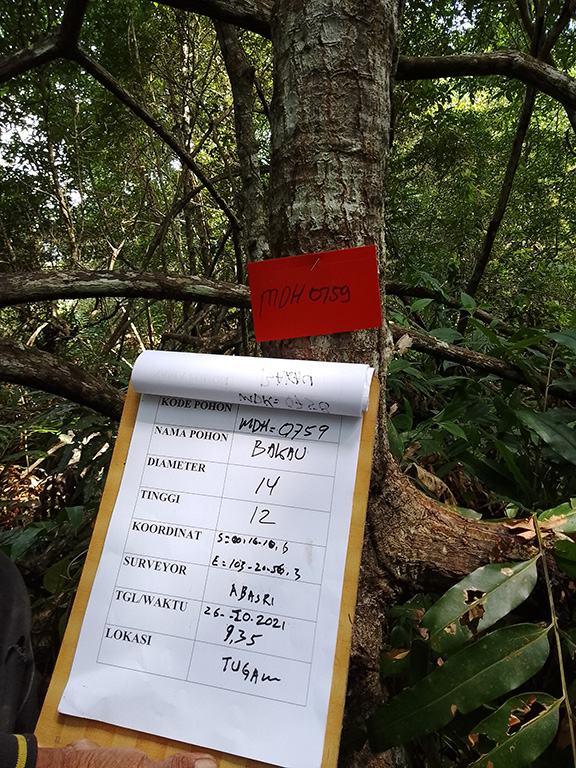 MDH 0759
KODE POHON MDH=0759
NAMA POHON BAKAU
DIAMETER 14
TINGGI 12
KOORDINAT S=00.16.16,6
E=103-20.56,3
SURVEYOR ABASRI
TGL/WAKTU 26-10.2021
9.35
LOKASI TUGAW